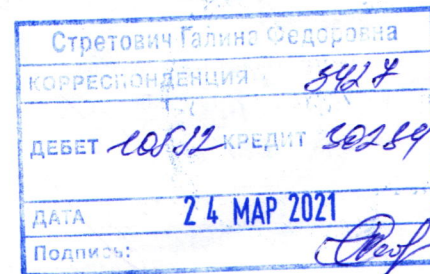 Стретович Галина Федоровна
КОРРЕСПОНДЕНЦИЯ 3427
ДЕБЕТ 10852 КРЕДИТ 30289
ДАТА 24 МАР 2021
Подпись: